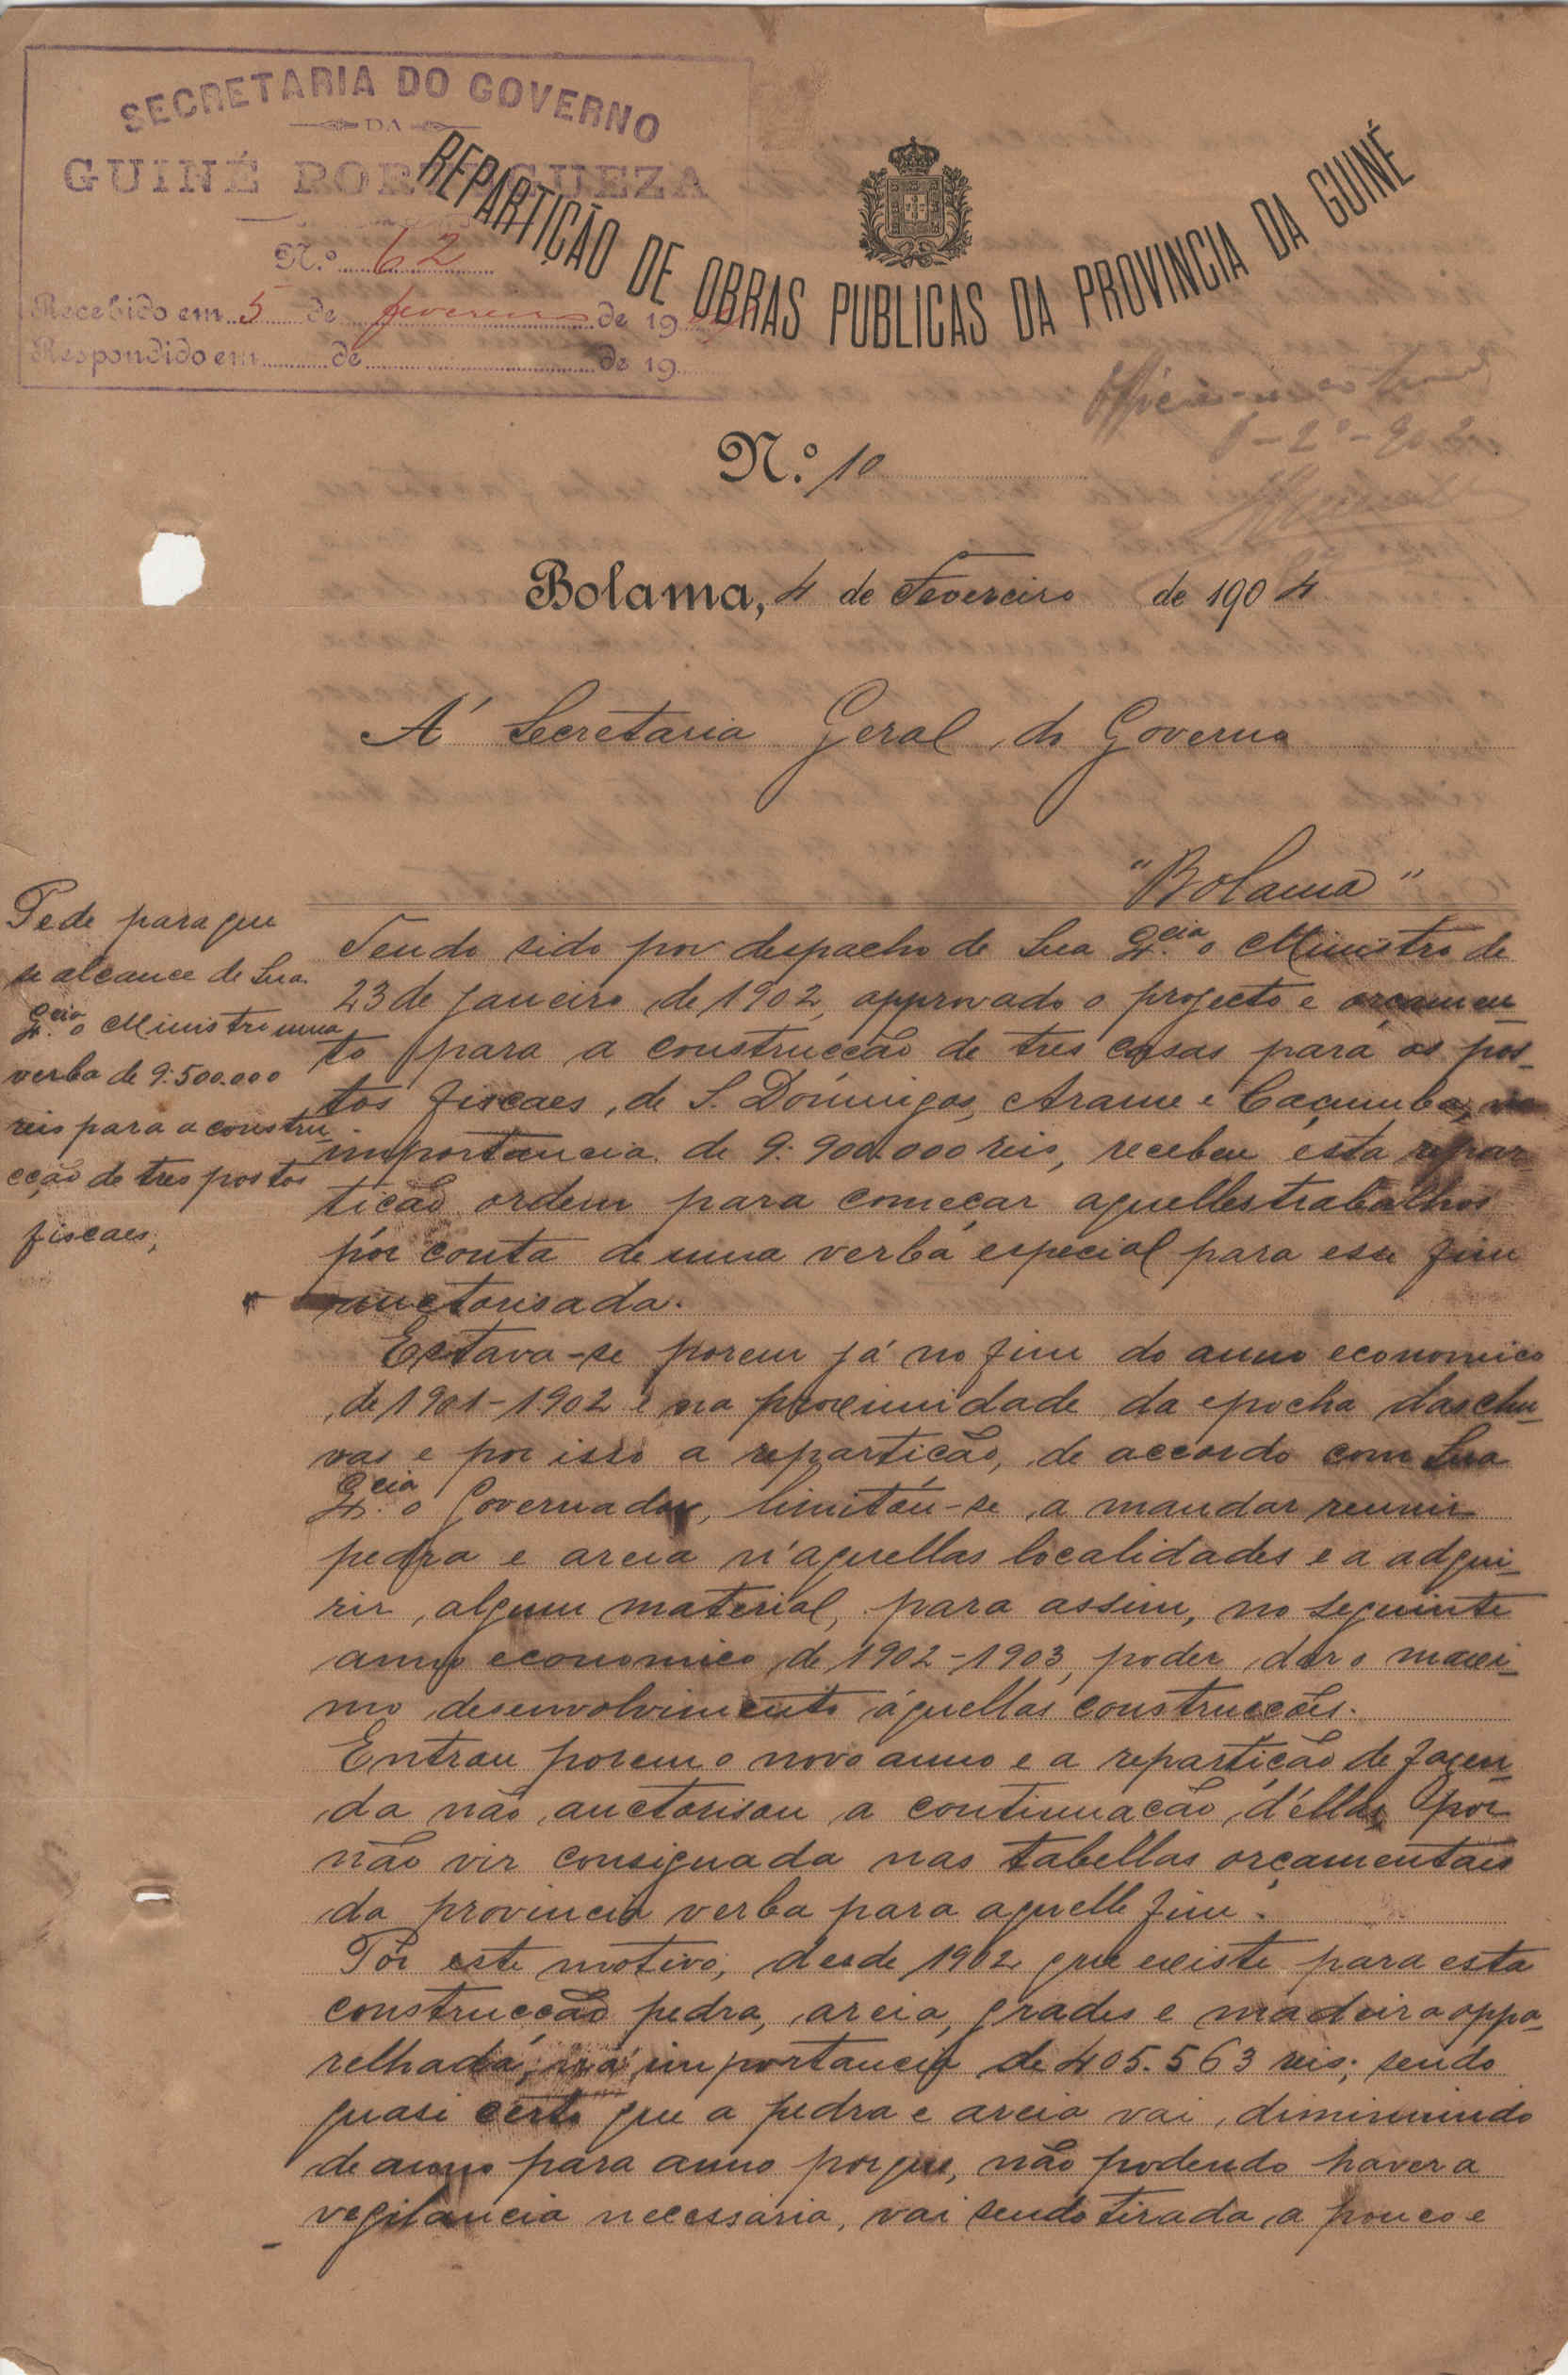 SECRETARIA DO GOVERNO
DA
GUINÉ PORTUGUEZA
N.º 62
Recebido em 5 de fevereiro de 19
Respondido em de de 19
REPARTIÇÃO DE OBRAS PUBLICAS DA PROVINCIA DA GUINÉ
N.º 10
Bolama, 4 de Fevereiro de 1904
Á Secretaria Geral do Governo
"Bolama"
Pede para que
se alcance de Sua
Ex.cia o Ministro uma
verba de 9:500.000
reis para a constru-
cção de tres postos
fiscaes,
Tendo sido por despacho de Sua Ex.cia o Ministro de
23 de Janeiro de 1902, approvado o projecto e orçamen-
to para a construcção de tres casas para os pos-
tos fiscaes, de S. Domingos, Arame e Caçumba, na
importancia de 9:900.000 reis, recebeu esta repar-
tição ordem para começar aquelles trabalhos
por conta de uma verba especial para esse fim
auctorisada.
Estava-se porem já no fim do anno economico
de 1901-1902 e na proximidade da epocha das chu-
vas e por isso a repartição, de accordo com Sua
Ex.cia o Governador, limitou-se a mandar reunir
pedra e areia n'aquellas localidades e a adqui-
rir algum material, para assim, no seguinte
anno economico de 1902-1903, poder dar o maxi-
mo desenvolvimento áquellas construcções.
Entrou porem o novo anno e a repartição de fazen-
da não auctorisou a continuação d'ellas por
não vir consignada nas tabellas orçamentaes
da provincia verba para aquelle fim.
Por este motivo, desde 1902 que existe para esta
construcção pedra, areia, grades e madeira appa-
relhada, na importancia de 405.563 reis; sendo
quasi certo que a pedra e areia vai diminuindo
de anno para anno porque, não podendo haver a
vegilancia necessaria, vai sendo tirada a pouco e